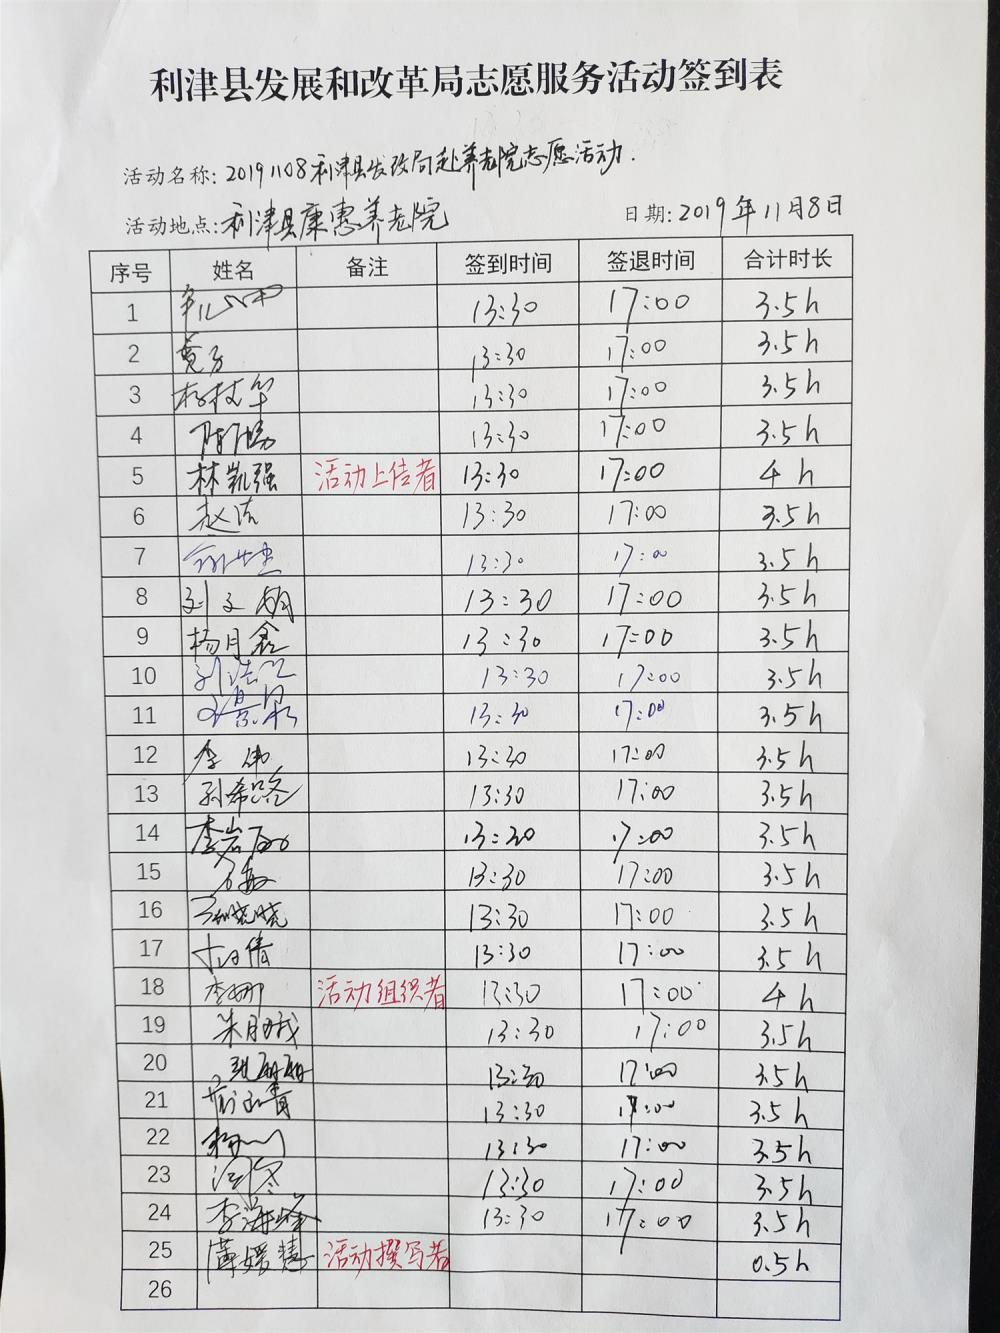 利津县发展和改革局志愿服务活动签到表
活动名称: 20191108利津县发改局赴养老院志愿活动.
活动地点: 利津县康惠养老院 日期: 2019年11月8日
序号 姓名 备注 签到时间 签退时间 合计时长
1 13:30 17:00 3.5h
2 13:30 17:00 3.5h
3 杨枝华 13:30 17:00 3.5h
4 13:30 17:00 3.5h
5 林凯强 活动上传者 13:30 17:00 4h
6 赵洁 13:30 17:00 3.5h
7 13:30 17:00 3.5h
8 刘文娟 13:30 17:00 3.5h
9 杨月鑫 13:30 17:00 3.5h
10 13:30 17:00 3.5h
11 13:30 17:00 3.5h
12 李伟 13:30 17:00 3.5h
13 孙希路 13:30 17:00 3.5h
14 李岩 13:30 17:00 3.5h
15 13:30 17:00 3.5h
16 晓晓 13:30 17:00 3.5h
17 倩 13:30 17:00 3.5h
18 李娜 活动组织者 13:30 17:00 4h
19 朱 13:30 17:00 3.5h
20 丽丽 13:30 17:00 3.5h
21 青 13:30 17:00 3.5h
22 杨 13:30 17:00 3.5h
23 13:30 17:00 3.5h
24 李海峰 13:30 17:00 3.5h
25 薄媛慧 活动撰写者 0.5h
26